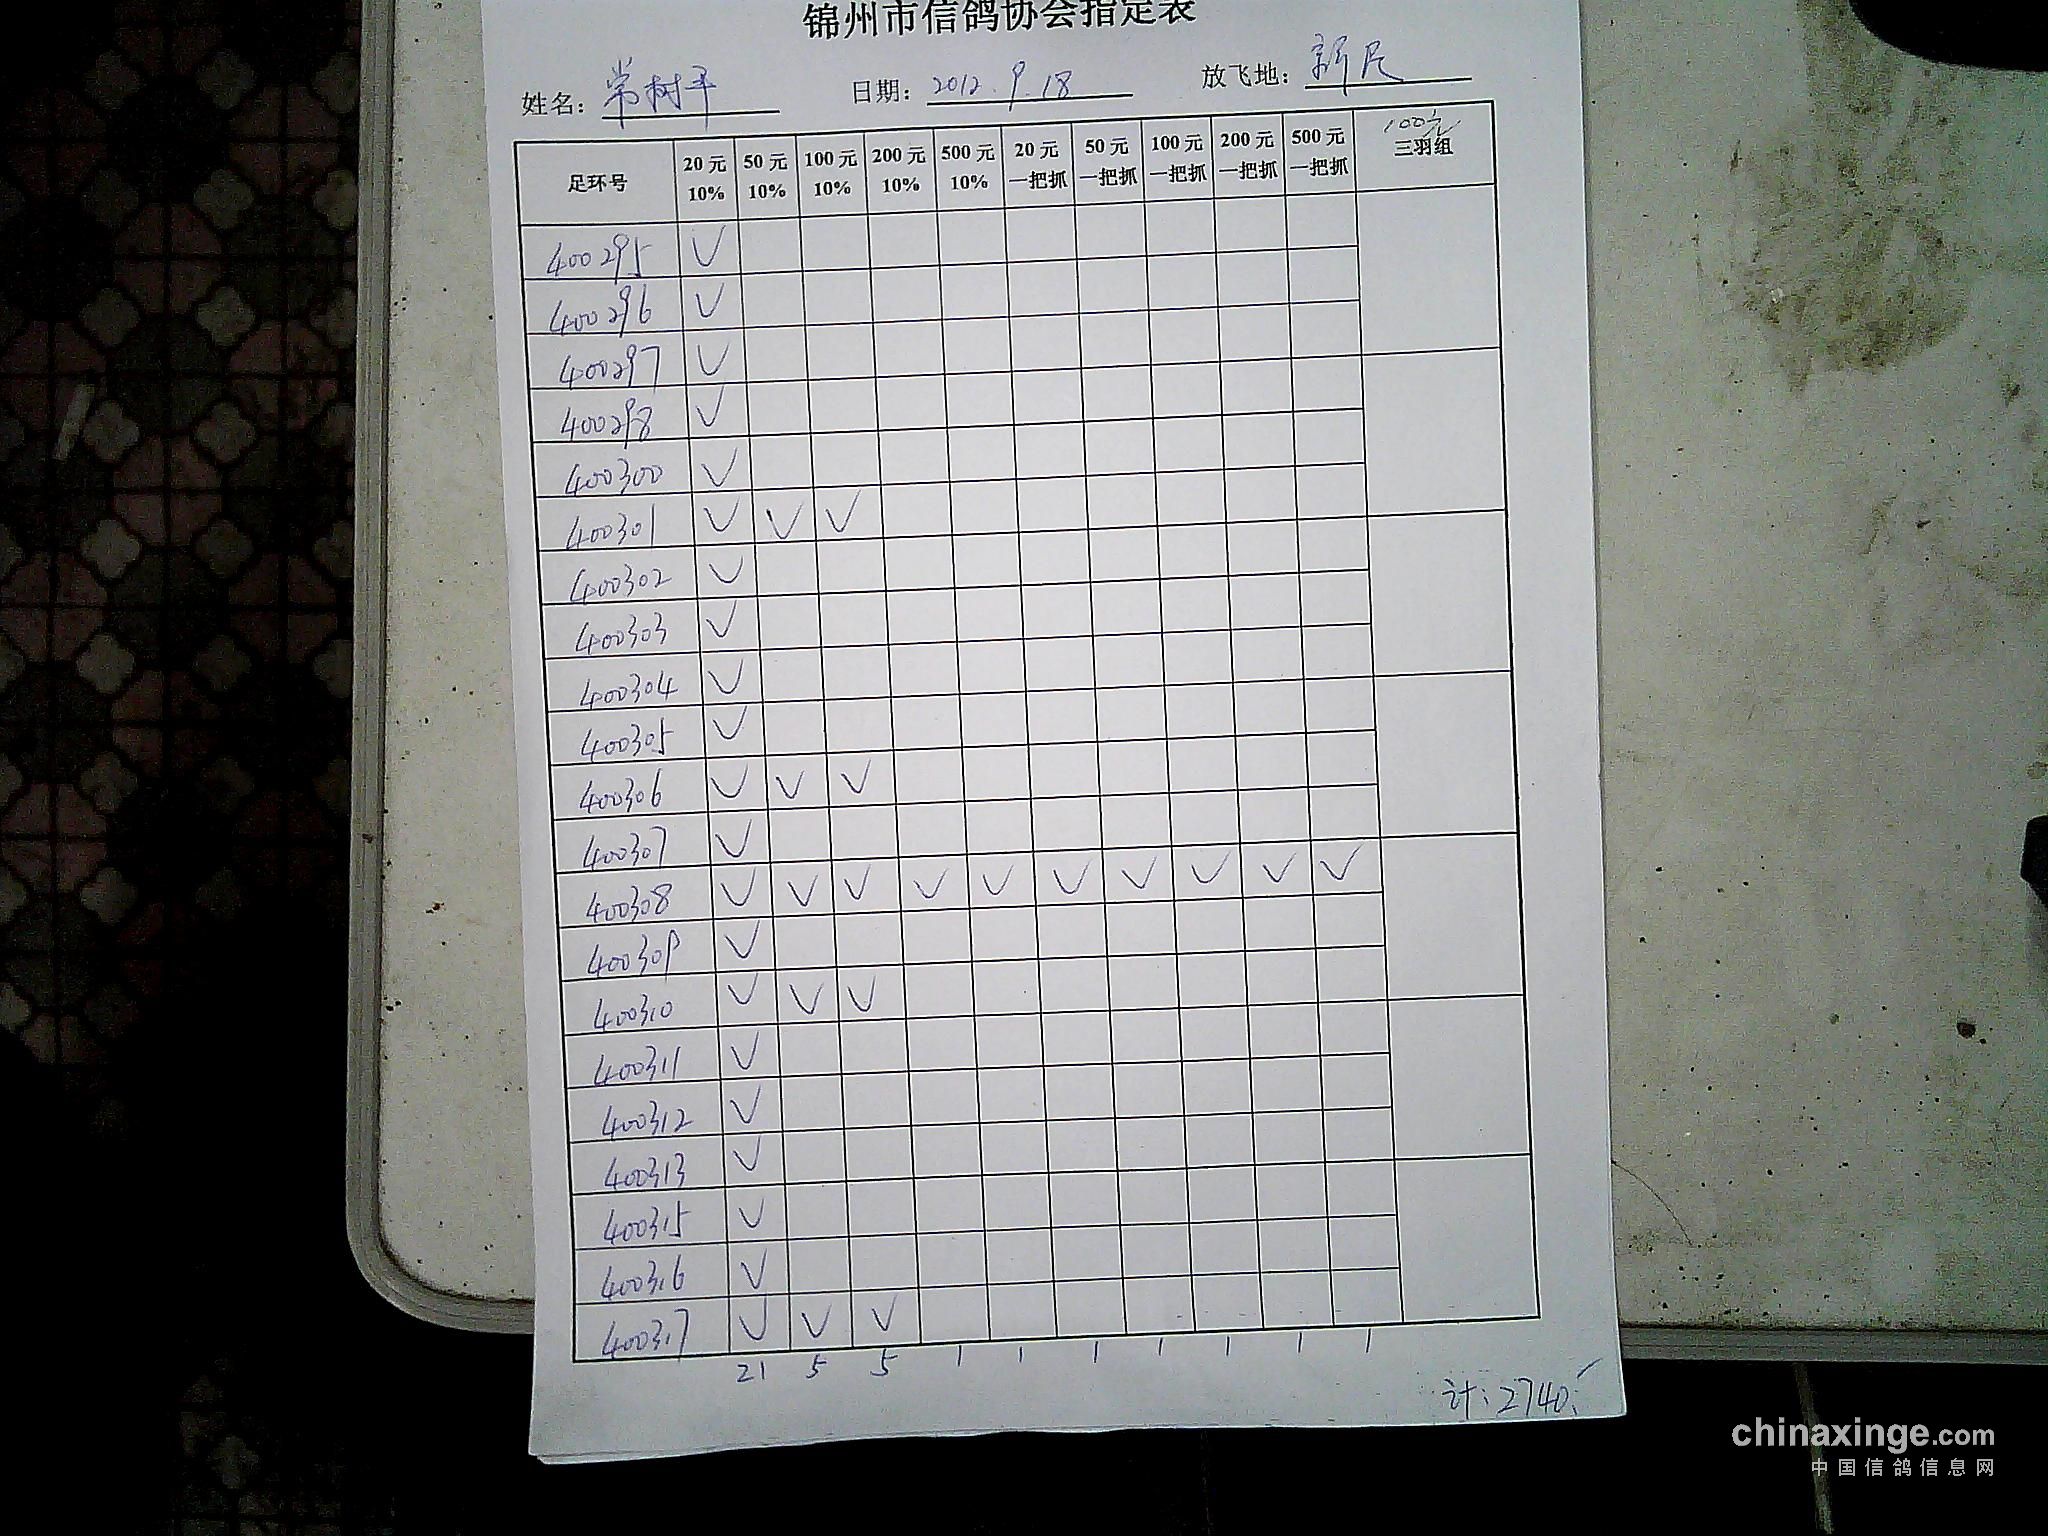 锦州市信鸽协会指定表
姓名: 常树平 日期: 2012.9.18 放飞地: 新民
足环号 20元 10% 50元 10% 100元 10% 200元 10% 500元 10% 20元 一把抓 50元 一把抓 100元 一把抓 200元 一把抓 500元 一把抓 100元 三羽组
400295 √
400296 √
400297 √
400298 √
400300 √
400301 √ √ √
400302 √
400303 √
400304 √
400305 √
400306 √ √ √
400307 √
400308 √ √ √ √ √ √ √ √ √ √
400309 √
400310 √ √ √
400311 √
400312 √
400313 √
400315 √
400316 √
400317 √ √ √
21 5 5 1 1 1 1 1 1 1
计: 2740.
chinaxinge.com
中国信鸽信息网